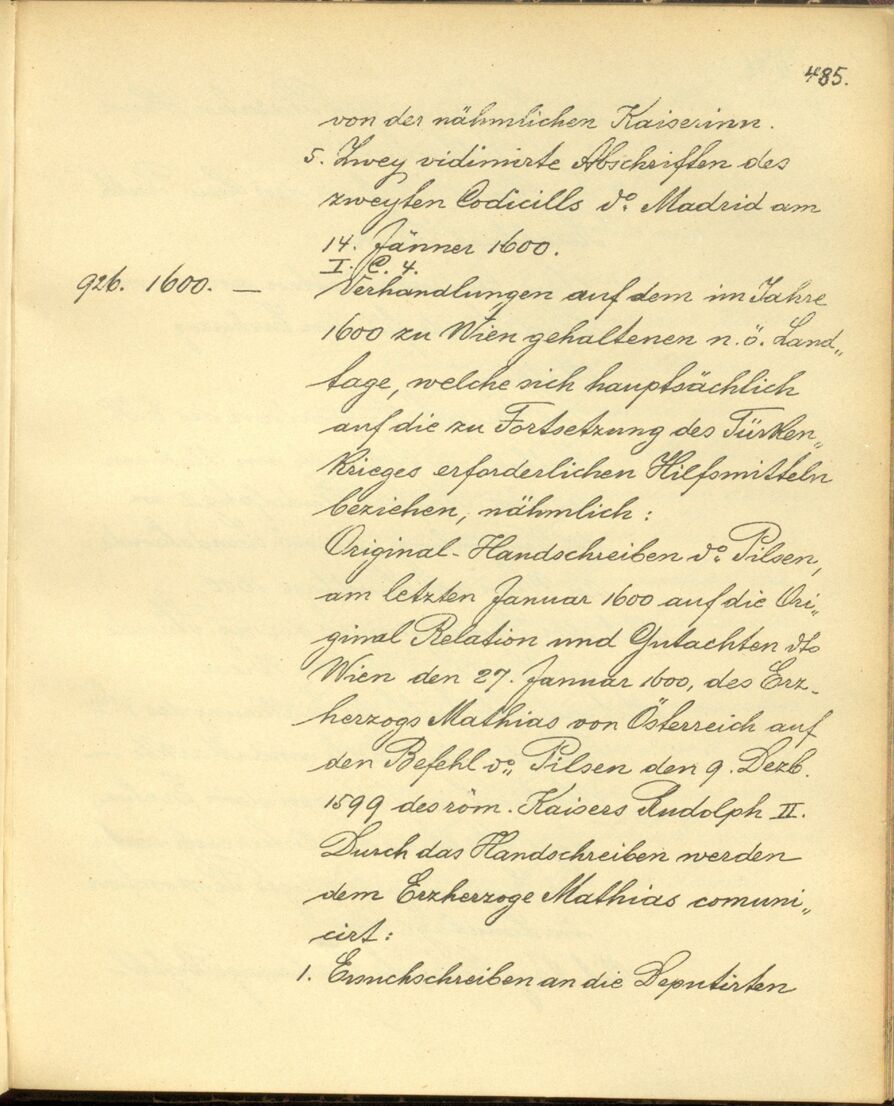 485.
von der nähmlichen Kaiserinn.
5. Zwey vidimirte Abschriften des
zweyten Codicills do. Madrid am
14. Jänner 1600.
I. C. 4.
926. 1600. — Verhandlungen auf dem im Jahre
1600 zu Wien gehaltenen n. ö. Land„
tage, welche sich hauptsächlich
auf die zu Fortsetzung des Türken„
Krieges erforderlichen Hilfsmitteln
beziehen, nähmlich:
Original-Handschreiben do. Pilsen,
am letzten Januar 1600 auf die Ori„
ginal Relation und Gutachten dto
Wien den 27. Januar 1600, des Erz-
herzogs Mathias von Österreich auf
den Befehl do. Pilsen den 9. Dezb.
1599 des röm. Kaisers Rudolph II.
Durch das Handschreiben werden
dem Erzherzoge Mathias comuni„
cirt:
1. Ersuchschreiben an die Deputirten